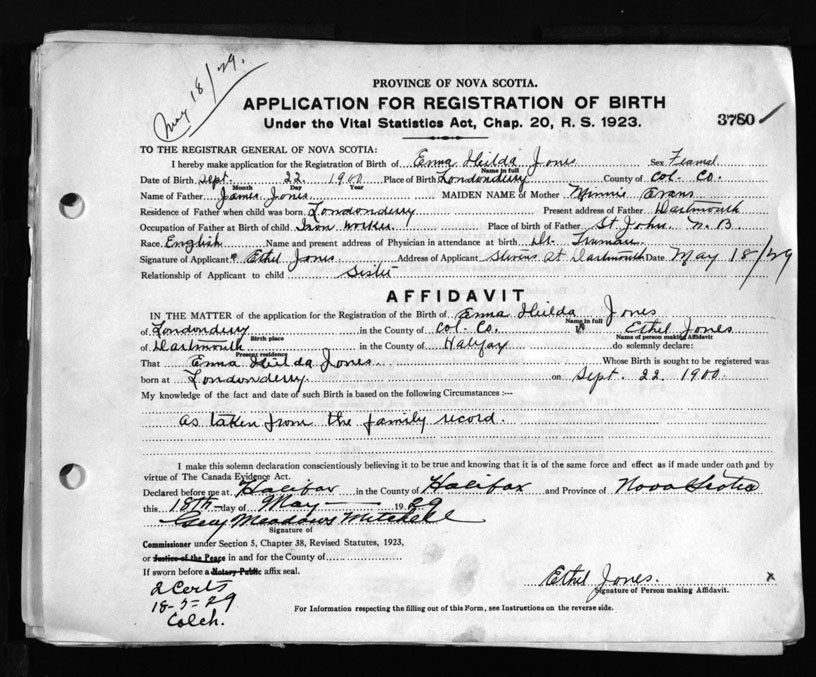 May 18/29.
PROVINCE OF NOVA SCOTIA.
APPLICATION FOR REGISTRATION OF BIRTH
Under the Vital Statistics Act, Chap. 20, R. S. 1923.
3780
TO THE REGISTRAR GENERAL OF NOVA SCOTIA:
I hereby make application for the Registration of Birth of Enma Hilda Jones Sex
Name in full
Date of Birth Sept. 22 1900 Place of Birth Londonderry County of Col. Co.
Month Day Year
Name of Father James Jones MAIDEN NAME of Mother Minnie Evans
Residence of Father when child was born Londonderry Present address of Father Dartmouth
Occupation of Father at Birth of child Iron worker Place of birth of Father St John. N. B
Race English Name and present address of Physician in attendance at birth Dr. Truman
Signature of Applicant Ethel Jones Address of Applicant Stevens St Dartmouth Date May 18/29
Relationship of Applicant to child Sister
AFFIDAVIT
IN THE MATTER of the application for the Registration of the Birth of Enma Hilda Jones
Name in full
of Londonderry in the County of Col. Co. Ethel Jones
Birth place Name of person making Affidavit
of Dartmouth in the County of Halifax do solemnly declare:
Present residence
That Enma Hilda Jones Whose Birth is sought to be registered was
born at Londonderry on Sept. 22. 1900.
My knowledge of the fact and date of such Birth is based on the following Circumstances :—
as taken from the family record.
I make this solemn declaration conscientiously believing it to be true and knowing that it is of the same force and effect as if made under oath and by
virtue of The Canada Evidence Act.
Declared before me at Halifax in the County of Halifax and Province of Nova Scotia
this 18th day of May 1929
Geo Meadows Mitchell
Signature of
Commissioner under Section 5, Chapter 38, Revised Statutes, 1923,
or Justice of the Peace in and for the County of
If sworn before a Notary Public affix seal.
Ethel Jones. x
Signature of Person making Affidavit.
2 Certs
18-5-29
Colch.
For Information respecting the filling out of this Form, see Instructions on the reverse side.